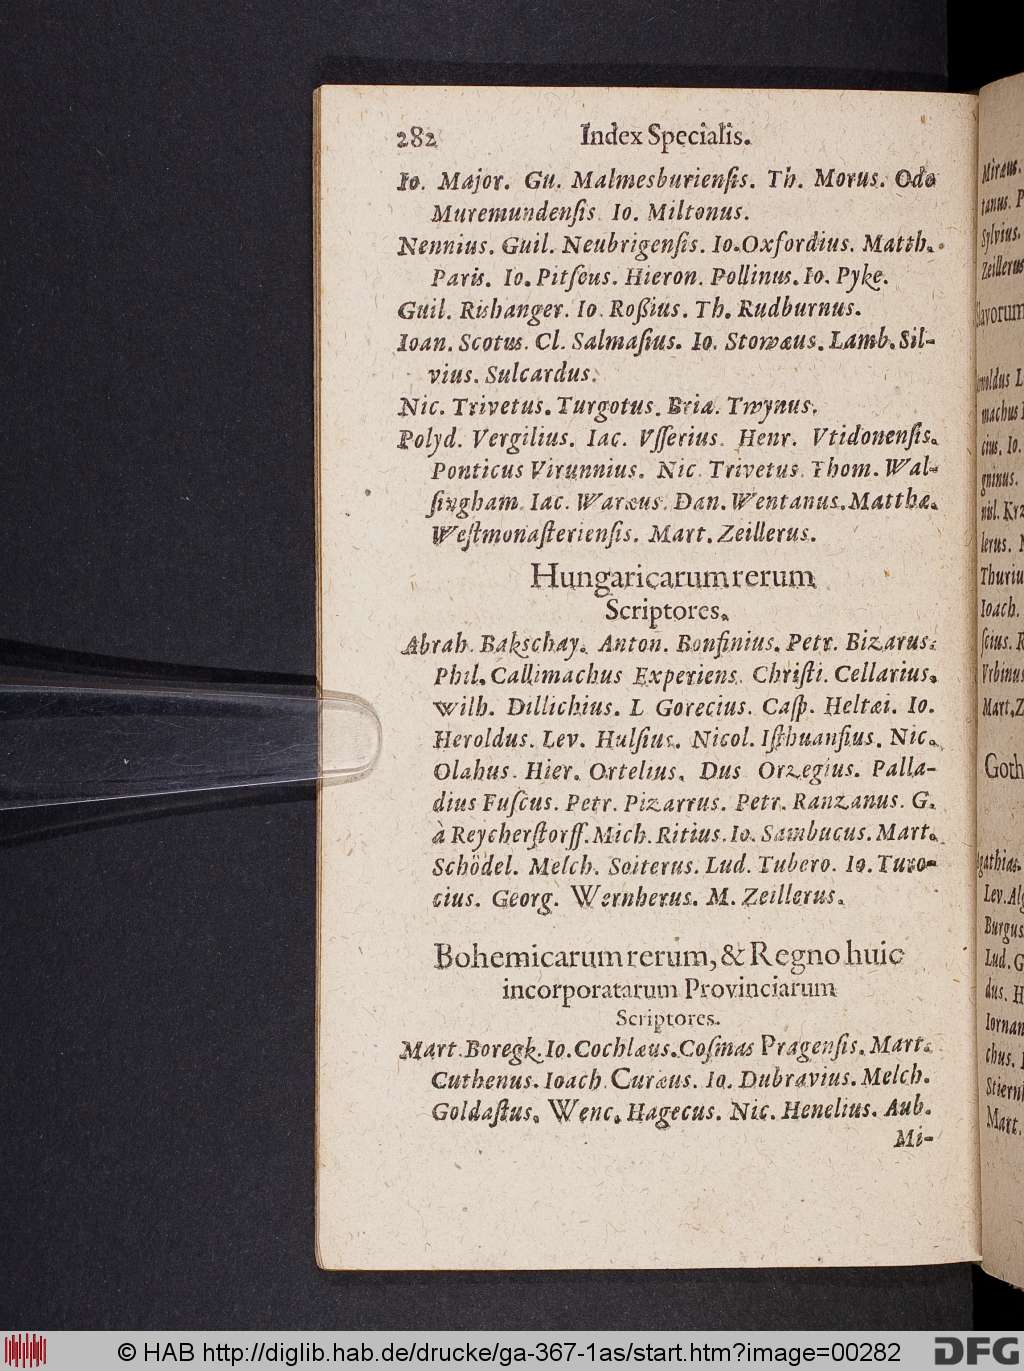 282 Index Specialis.
Io. Major. Gu. Malmesburienſis. Th. Morus. Odo
Muremundenſis. Io. Miltonus.
Nennius. Guil. Neubrigenſis. Io. Oxfordius. Matth.
Paris. Io. Pitſeus. Hieron. Pollinus. Io. Pyke.
Guil. Rishanger. Io. Roßius. Th. Rudburnus.
Ioan. Scotus. Cl. Salmaſius. Io. Stowæus. Lamb. Sil-
vius. Sulcardus.
Nic. Trivetus. Turgotus. Bria. Twynus.
Polyd. Vergilius. Iac. Vſſerius. Henr. Vtidonenſis.
Ponticus Virunnius. Nic. Trivetus. Thom. Wal-
ſingham. Iac. Waræus. Dan. Wentanus. Matthæ.
Weſtmonaſterienſis. Mart. Zeillerus.
Hungaricarum rerum
Scriptores.
Abrah. Bakschay. Anton. Bonfinius. Petr. Bizarus.
Phil. Callimachus Experiens. Chriſti. Cellarius.
Wilh. Dillichius. L. Gorecius. Caſp. Heltæi. Io.
Heroldus. Lev. Hulſius. Nicol. Iſthuanſius. Nic.
Olahus. Hier. Ortelius. Dus Orzegius. Palla-
dius Fuſcus. Petr. Pizarrus. Petr. Ranzanus. G.
à Reycherſtorff. Mich. Ritius. Io. Sambucus. Mart.
Schödel. Melch. Soiterus. Lud. Tubero. Io. Turo-
cius. Georg. Wernherus. M. Zeillerus.
Bohemicarum rerum, & Regno huic
incorporatarum Provinciarum
Scriptores.
Mart. Boregk. Io. Cochlæus. Coſmas Pragenſis. Mart.
Cuthenus. Ioach. Curæus. Io. Dubravius. Melch.
Goldaſtus. Wenc. Hagecus. Nic. Henelius. Aub.
Mi-
Miræus.
tanus. P
Sylvius.
Zeillerus
lavorum
noldus L
machus
cius. Io.
gninus.
nisl. Krz
lerus. M
Thuriu
Ioach.
ſcius. R
Vrbinus
Mart. Z
Goth
Agathias.
Lev. Alg
Burgus
Lud. G
dus. H
Iornan
chus.
Stiernh
Mart.
© HAB http://diglib.hab.de/drucke/ga-367-1as/start.htm?image=00282
DFG